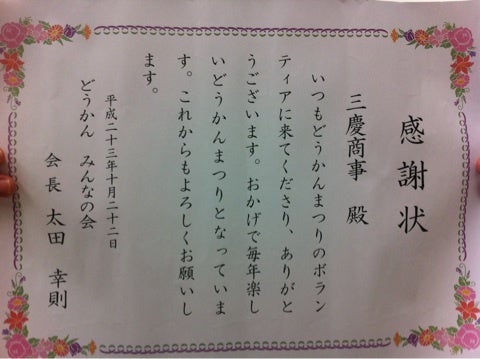 感謝状
三慶商事 殿
いつもどうかんまつりのボラン
ティアに来てくださり、ありがと
うございます。おかげで毎年楽し
いどうかんまつりとなっていま
す。これからもよろしくお願いし
ます。
平成二十三年十月二十二日
どうかん みんなの会
会長 太田 幸則